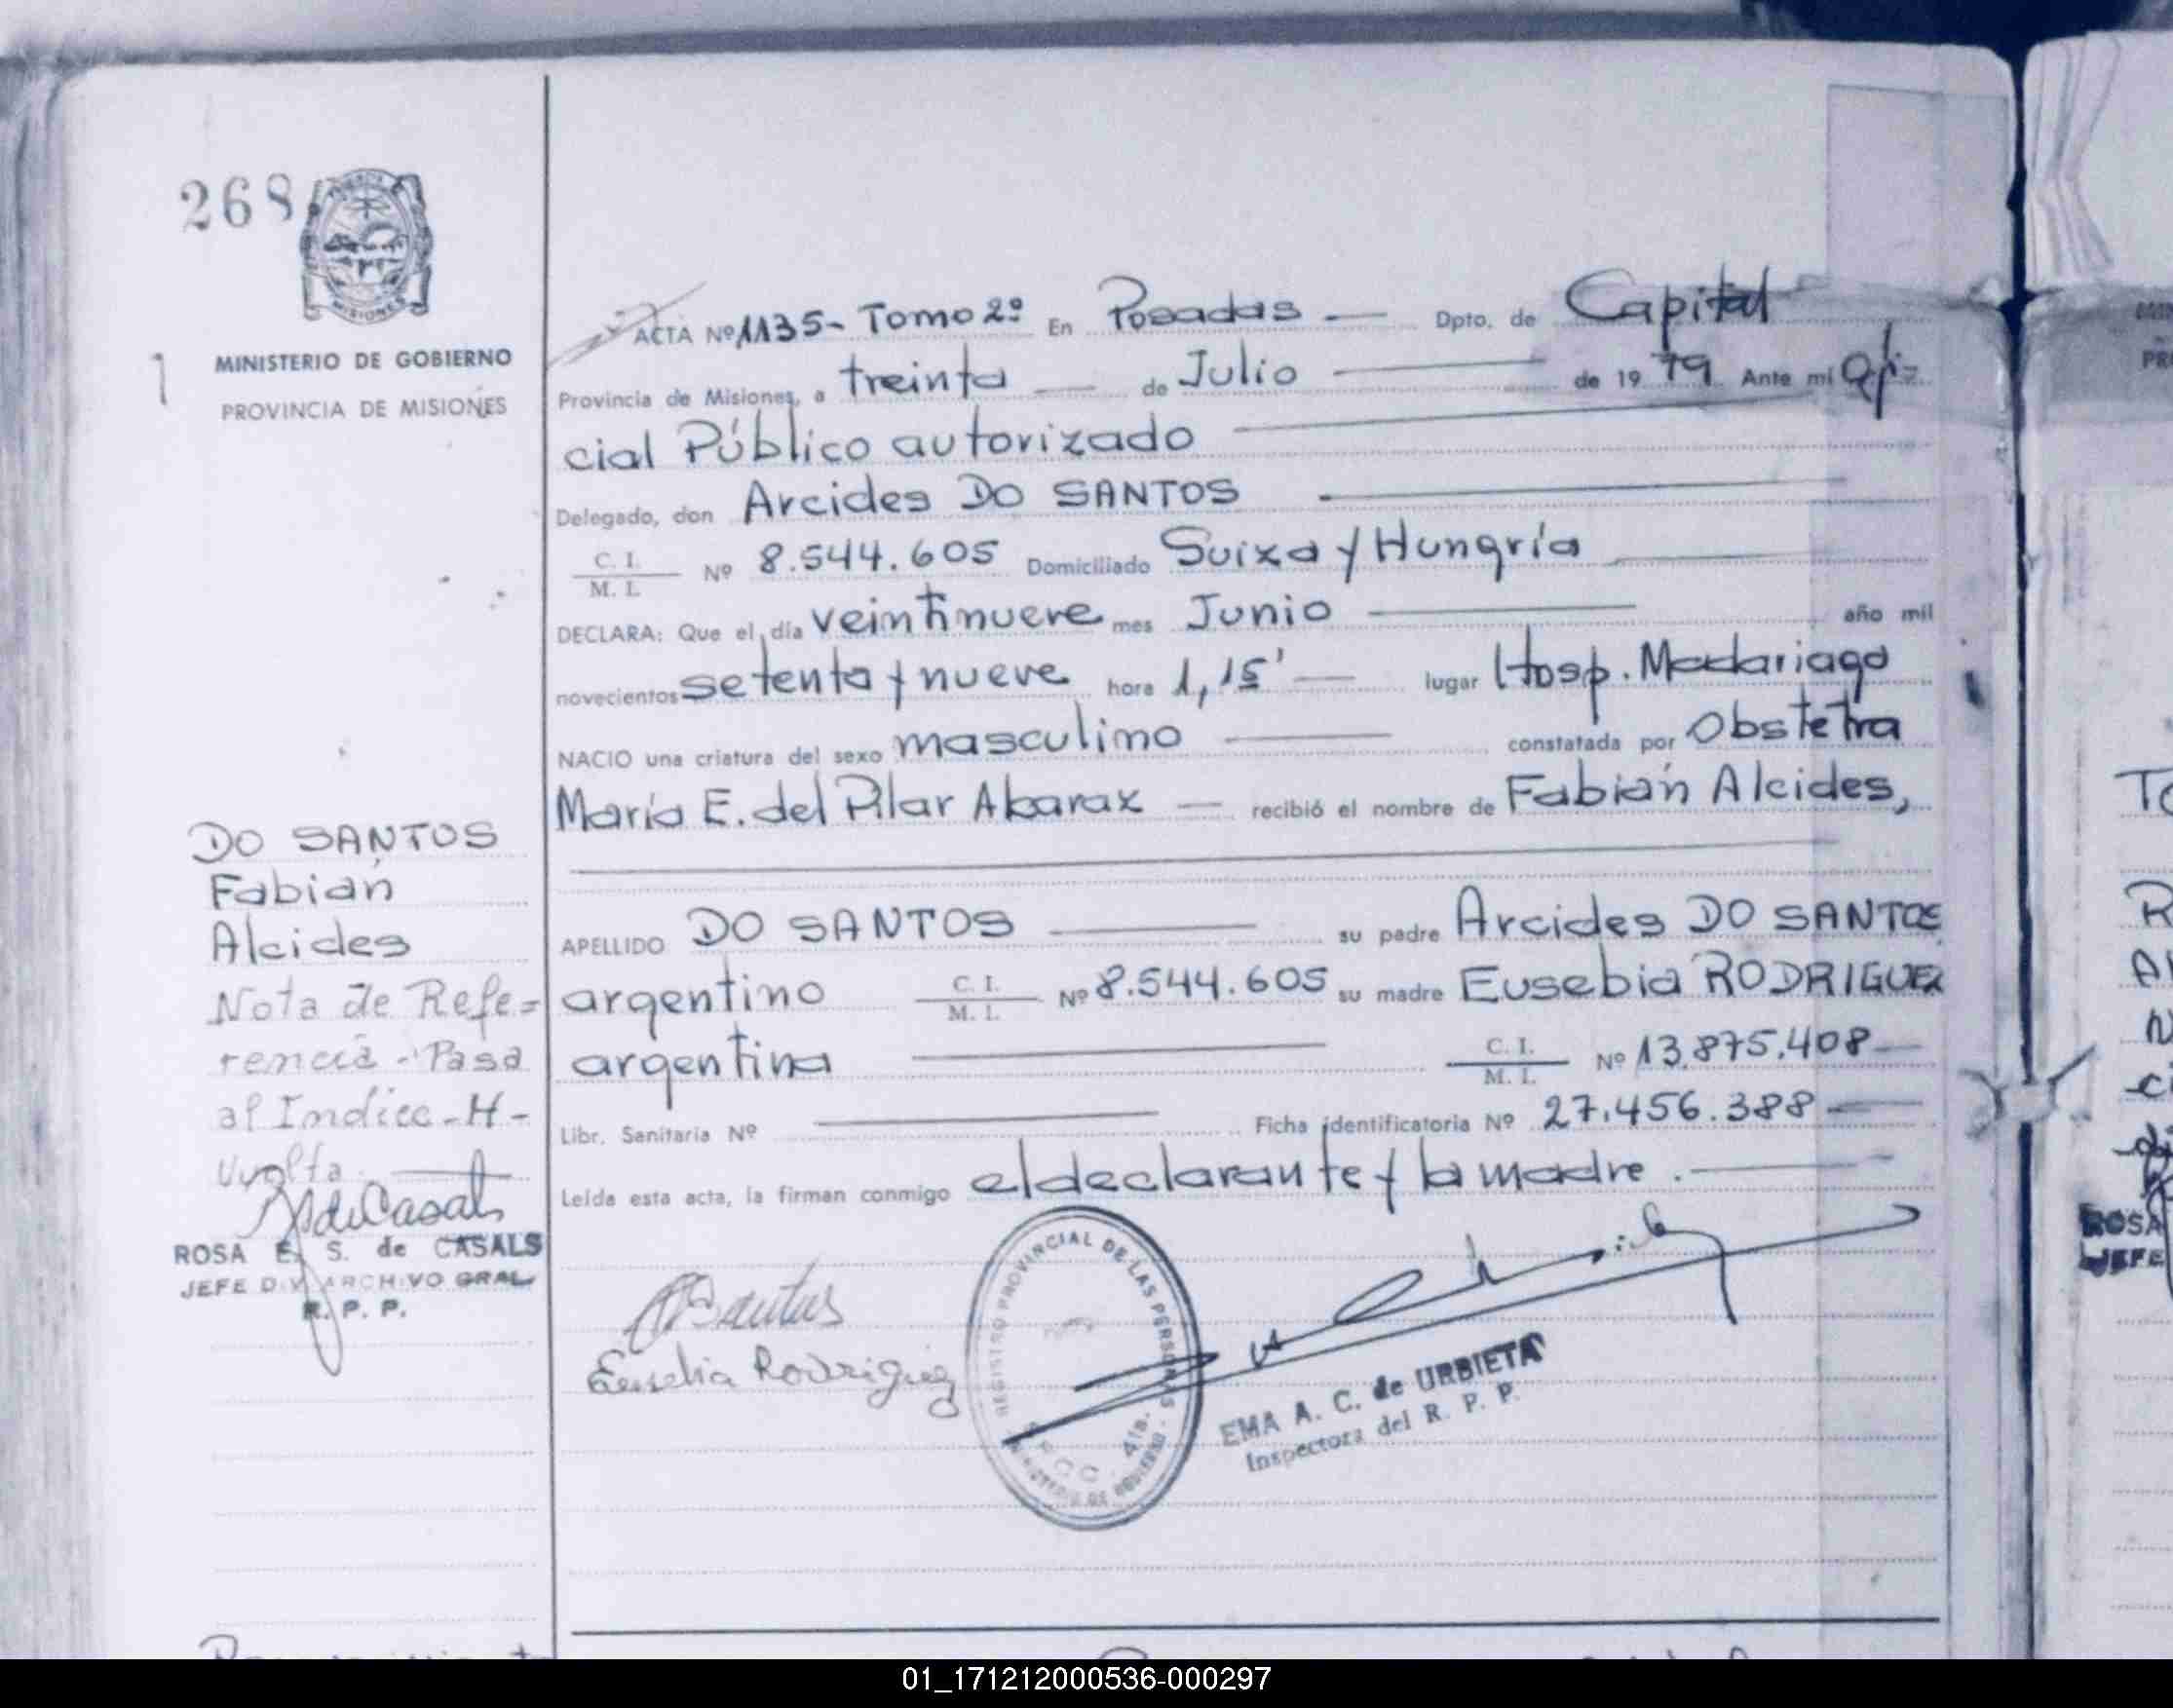 268
MISIONES
MINISTERIO DE GOBIERNO
PROVINCIA DE MISIONES
ACTA Nº 1135- Tomo 2º En Posadas — Dpto. de Capital
Provincia de Misiones, a treinta — de Julio — de 19 79 Ante mi Ofi=
cial Público autorizado
Delegado, don Arcides DO SANTOS
C. I.
M. I. Nº 8.544.605 Domiciliado Suiza y Hungría
DECLARA: Que el día veintinueve mes Junio — año mil
novecientos setenta y nueve hora 1,15' — lugar Hosp. Madariaga
NACIO una criatura del sexo masculino — constatada por Obstetra
María E. del Pilar Abarax — recibió el nombre de Fabián Alcides,
APELLIDO DO SANTOS — su padre Arcides DO SANTOS
argentino C. I.
M. I. Nº 8.544.605 su madre Eusebia RODRIGUEZ
argentina — C. I.
M. I. Nº 13.875.408 —
Libr. Sanitaria Nº — Ficha identificatoria Nº 27.456.388 —
Leída esta acta, la firman conmigo el declarante y la madre. —
DO SANTOS
Fabián
Alcides
Nota de Refe=
rencia - Pasa
al Indice - H -
Vuelta
ROSA E. S. de CASALS
JEFE DIV ARCHIVO GRAL
R. P. P.
ASantos
Eusebia Rodriguez
REGISTRO PROVINCIAL DE LAS PERSONAS
MINISTERIO DE GOBIERNO
4ta.
EMA A. C. de URBIETA
Inspectora del R. P. P.
ROSA
JEFE
01_171212000536-000297